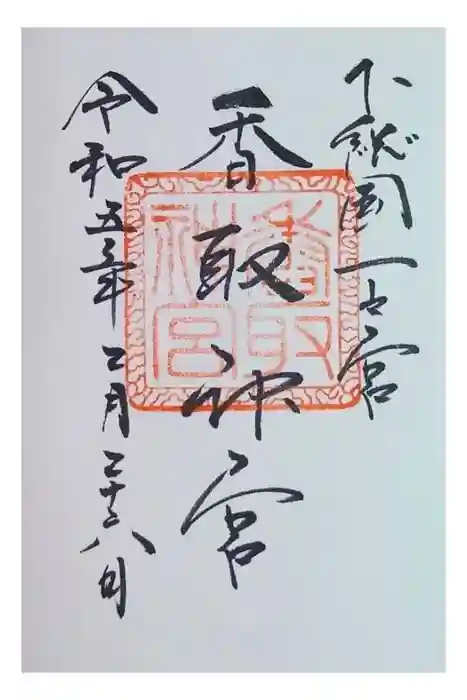 下総国一之宮
香取神宮
香取神宮
令和五年二月二十八日